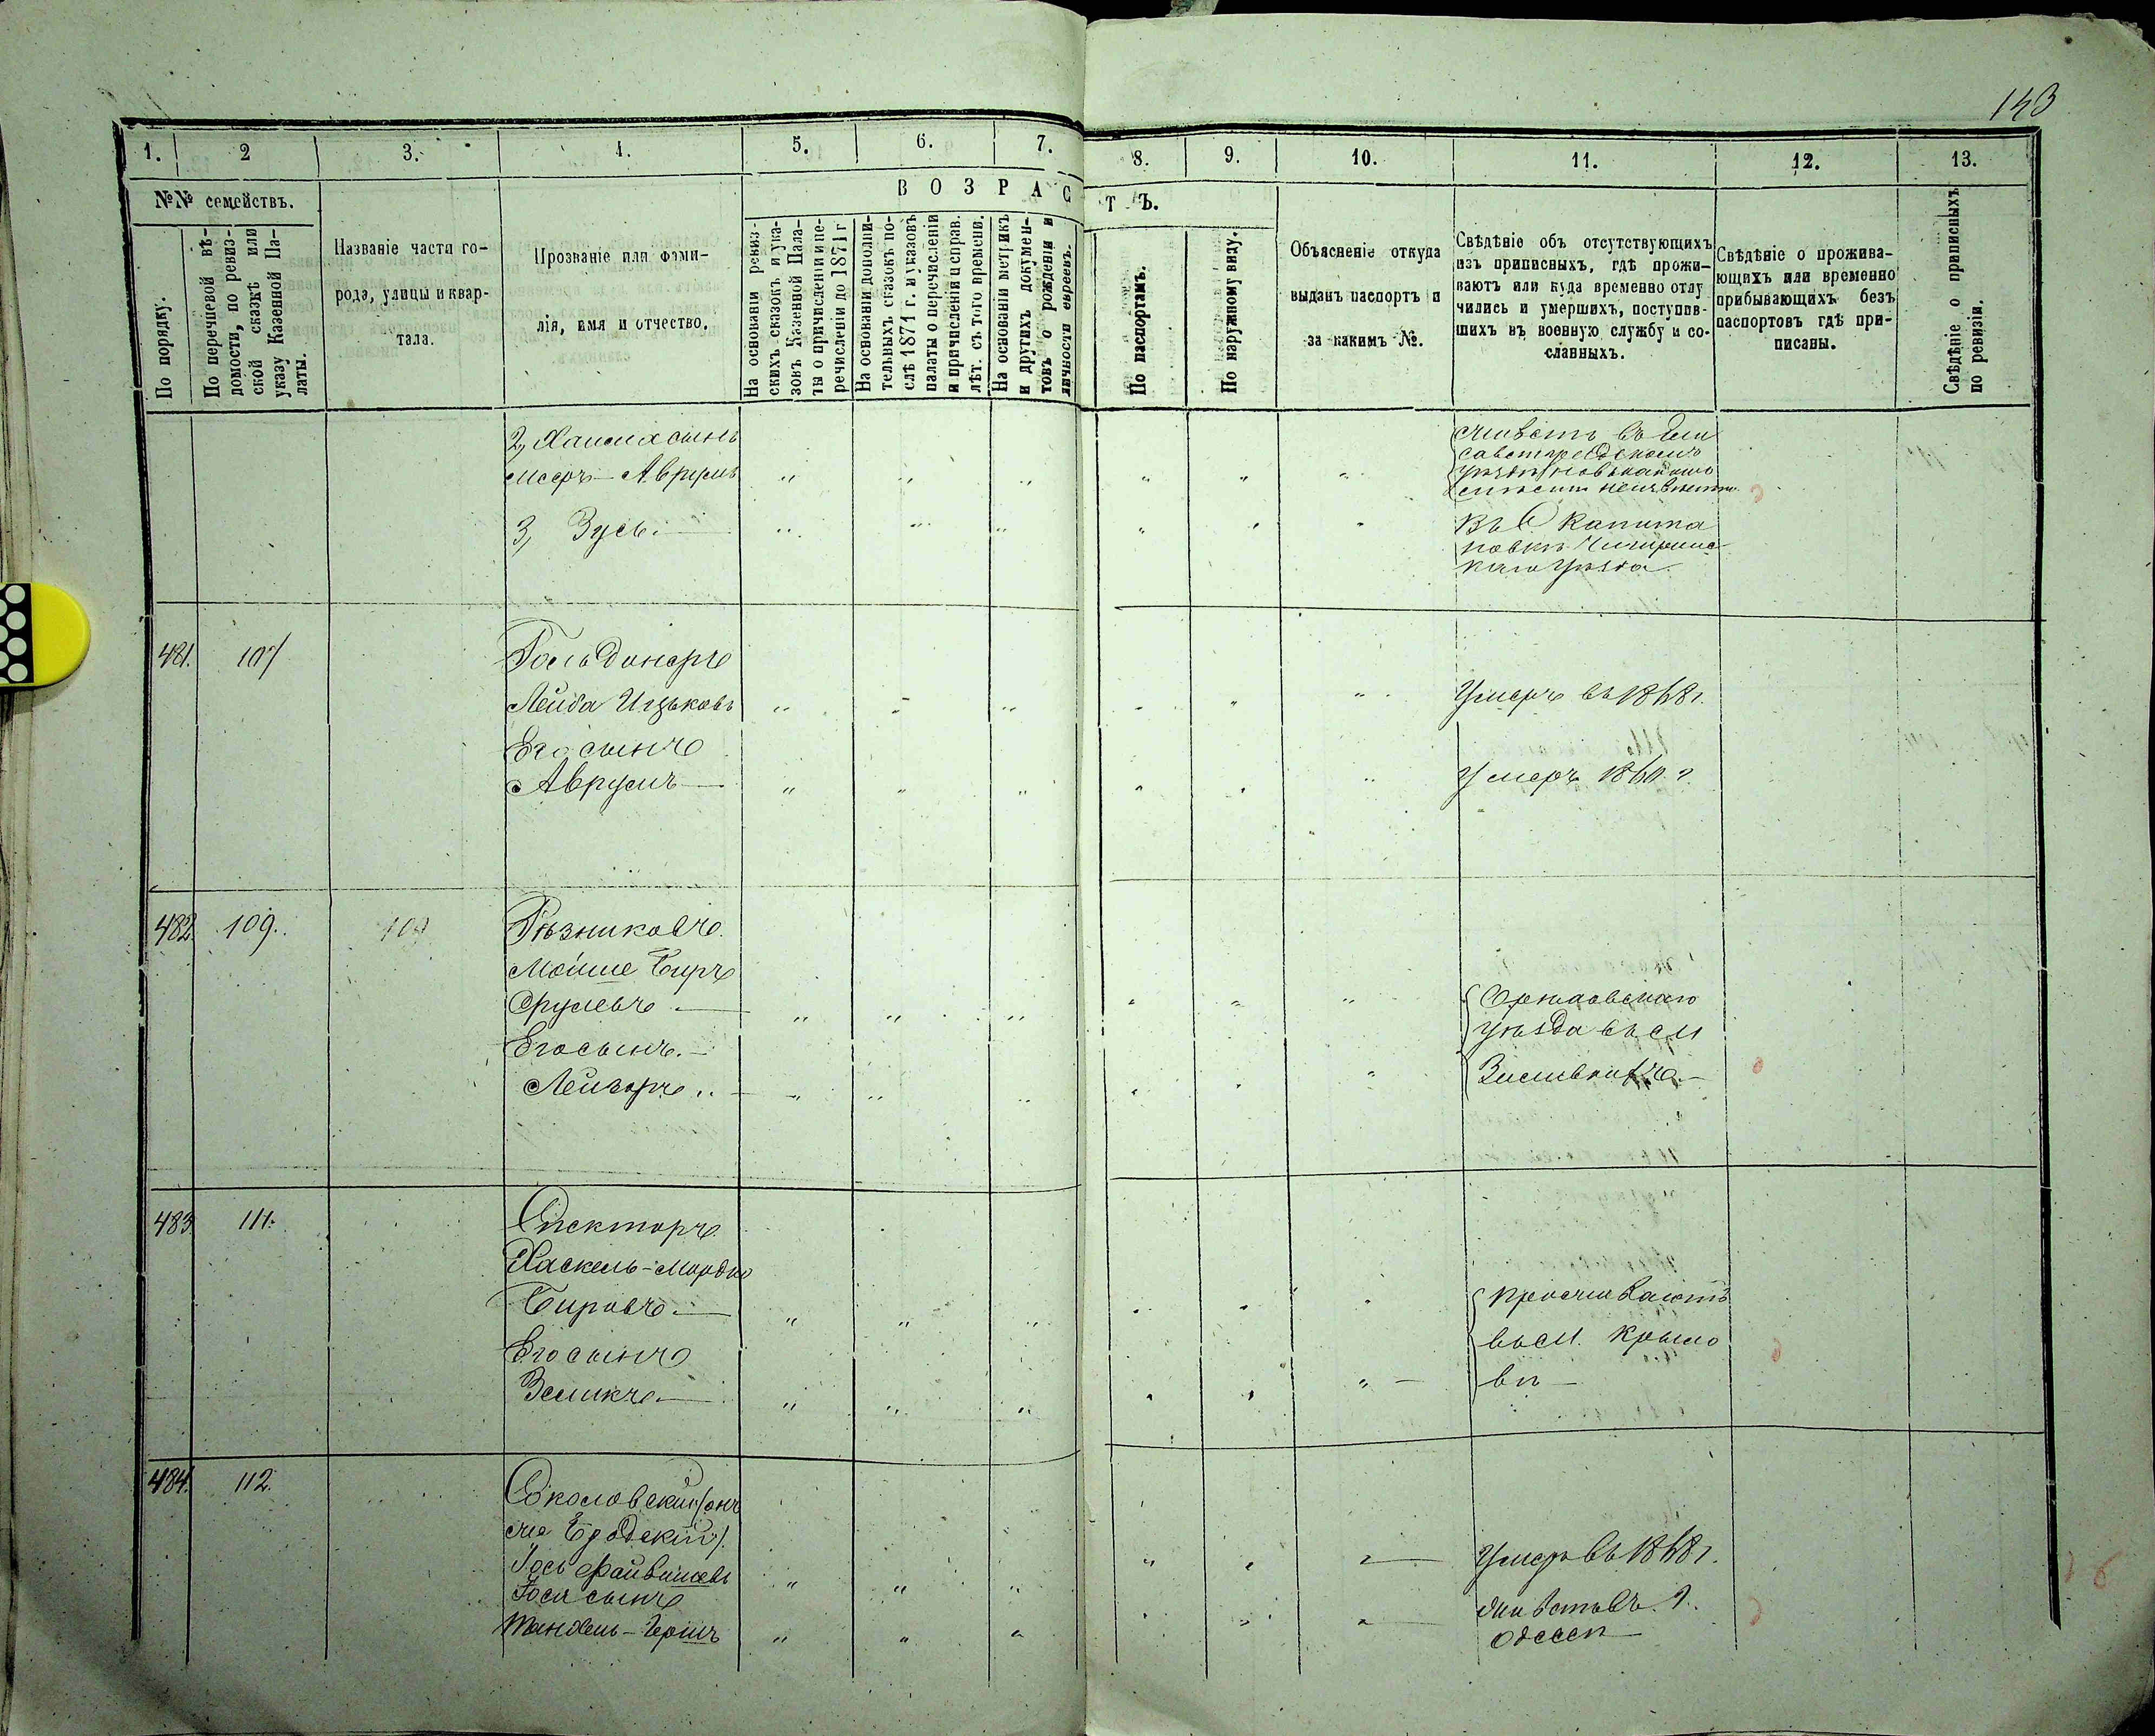 143
1.
2
3.
4.
5.
6.
7.
8.
9.
10.
11.
12.
13.
№№ семействъ.
По порядку.
По перечневой вѣ-
домости, по ревиз-
ской сказкѣ или
указу Казенной Па-
латы.
Названіе части го-
рода, улицы и квар-
тала.
Прозваніе или фами-
лія, имя и отчество.
ВОЗРАСТЪ.
На основаніи ревиз-
скихъ сказокъ и ука-
зовъ Казенной Пала-
ты о причисленіи и пе-
речисленіи до 1871 г
На основаніи дополни-
тельныхъ сказокъ по-
слѣ 1871 г. и указовъ
палаты о перечисленіи
и причисленіи исправ.
лѣт. съ того времени.
На основаніи метрикъ
и другихъ докумен-
товъ о рожденіи и
личности евреевъ.
По паспортамъ.
По наружному виду.
Объясненіе откуда
выданъ паспортъ и
за какимъ №.
Свѣдѣніе объ отсутствующихъ
изъ приписныхъ, гдѣ прожи-
ваютъ или куда временно отлу
чились и умершихъ, поступив-
шихъ въ военную службу и со-
сланныхъ.
Свѣдѣніе о прожива-
ющихъ или временно
прибывающихъ безъ
паспортовъ гдѣ при-
писаны.
Свѣдѣніе о приписныхъ
по ревизіи.
2, Хаима сынъ
Мееръ-Аврумъ
живетъ въ Ели
саветградскомъ
уѣздѣ
неизвѣстно
3, Зусь
Въ С Капита
новкѣ Чигиринс
каго уѣзда
481. 107
Гольдинеръ
Лейба Ицьковъ
Умеръ въ 1868 г.
Его сынъ
Аврумъ
Умеръ 1860 г
482 109.
Рѣзниковъ
Мойше Беръ
Срулевъ
уѣзда въ м
Его сынъ.
Лейзеръ
483 111.
Спекторъ
Хаскель-Мордко
Беровъ
проживаютъ
въ м. Крыло
вѣ
Его сынъ
Зеликъ
484. 112.
Соколовскій (онъ
же Бродскій)
Іось Файвишевъ
Умеръ въ 1868 г.
Іося сынъ
-Гершъ
живетъ въ г.
Одессѣ